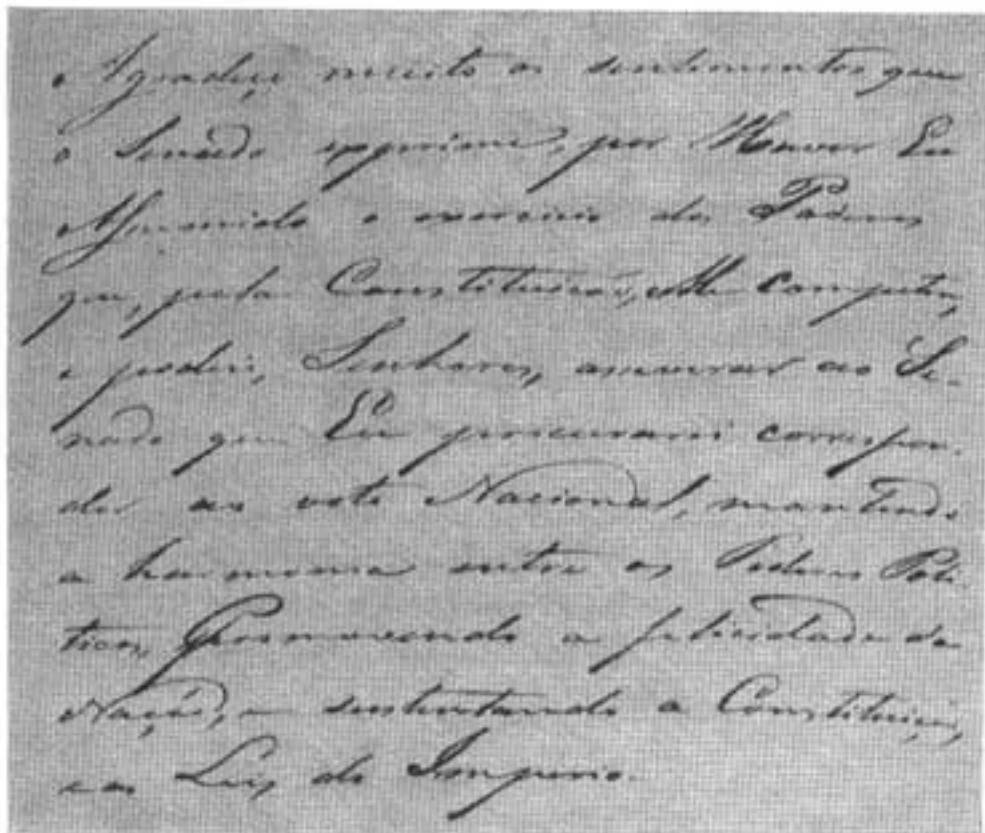 Agradeço muito os sentimentos que
o Senado exprime, por Haver Eu
Assumido o exercicio dos Poderes
que, pela Constituição, Me competem,
e podeis, Senhores, assegurar ao Se-
nado que Eu procurarei correspon-
der ao voto Nacional, mantendo
a harmonia entre os Poderes Poli-
ticos, Promovendo a felicidade da
Nação, e sustentando a Constituição,
e as Leis do Imperio.